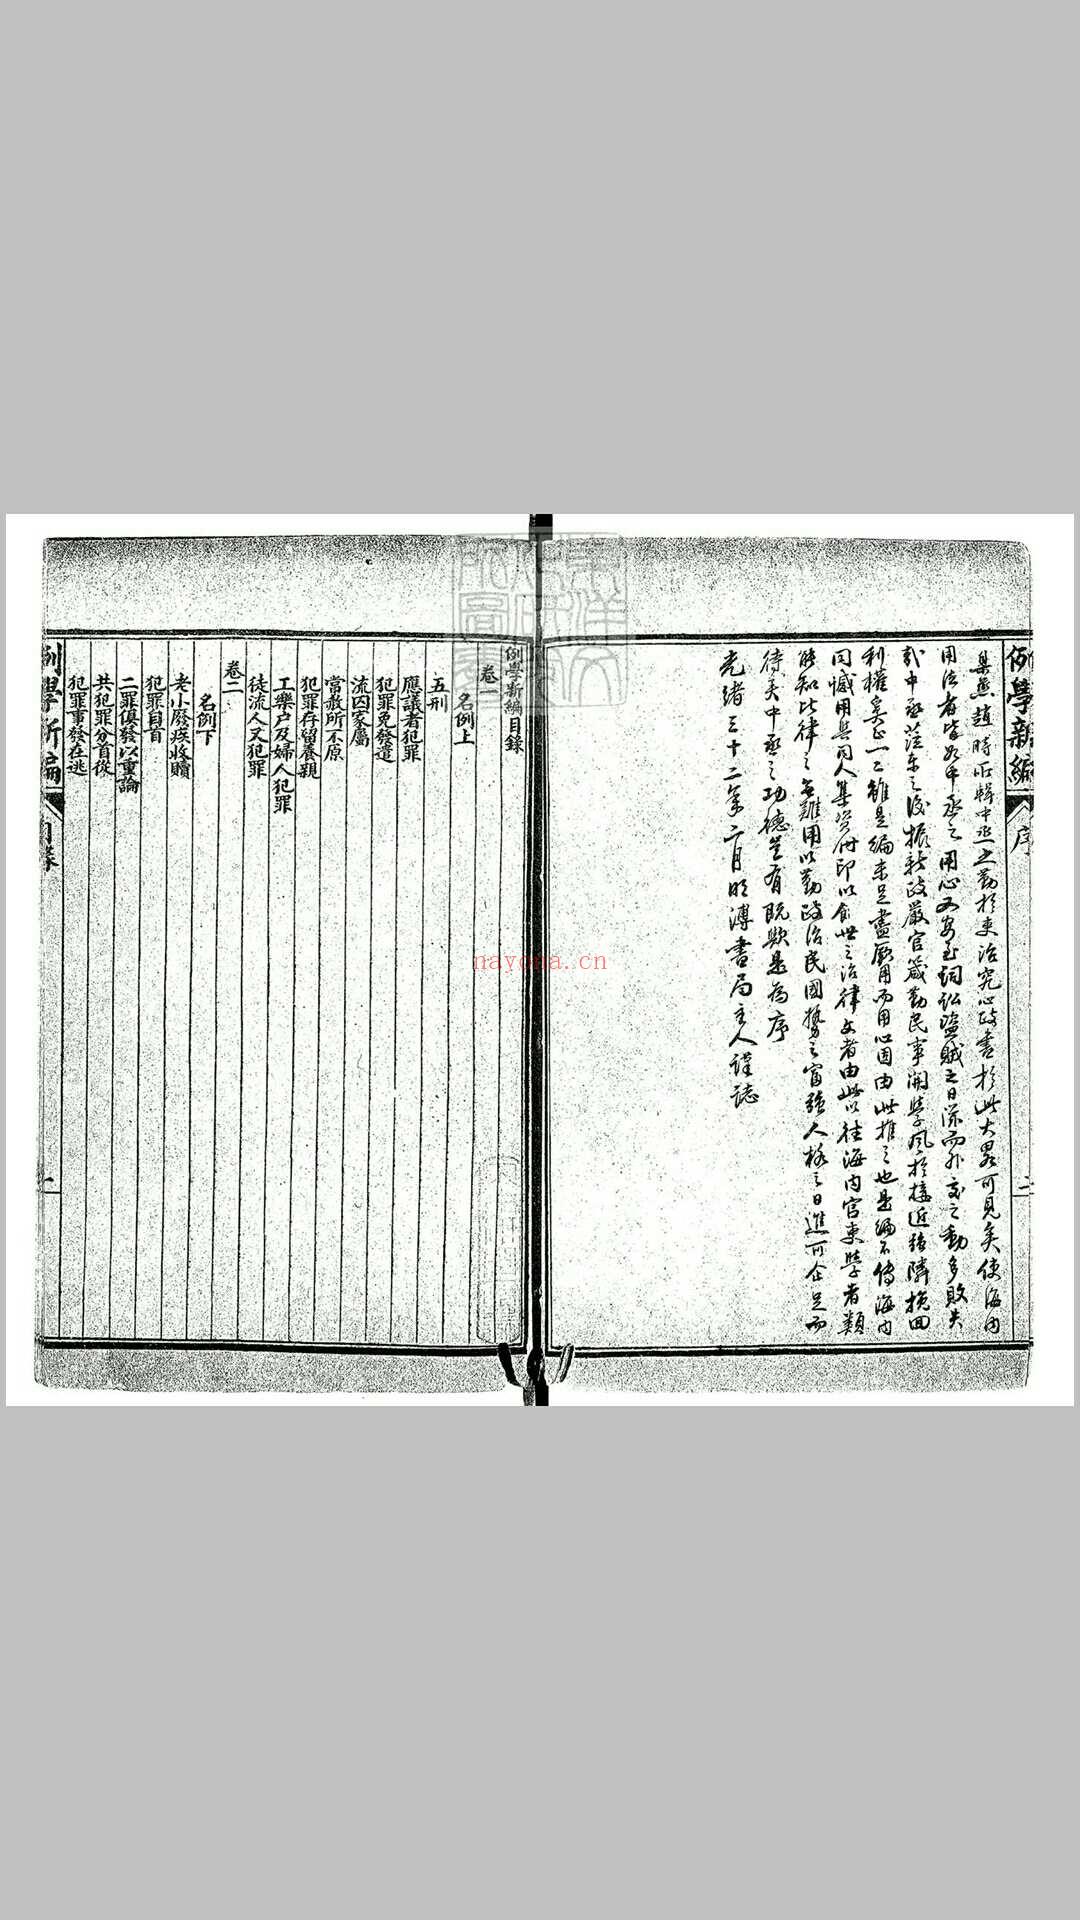 例學新編
序
二
臬燕趙時所輯中丞之勤於吏治究心政書於此大畧可見矣使海內
用法者皆如中丞之用心又安至詞訟盜賊之日滋而外交之動多敗失
我中丞蒞東之後振新政嚴官箴勤民事開學風於接近強隣挽回
利權奚止一二雖是編未足盡厥用而用心固由此推之也是編不傳海內
同憾用與同人集資付印以餉世之治律文者由此以往海內官吏學者類
能知比律之無難用以勤政治民國勢之富強人格之日進可企足而
待矣中丞之功德豈有既歟是為序
光緒三十二年二月明溥書局主人謹誌
例學新編目錄
卷一
名例上
五刑
應議者犯罪
犯罪免發遣
流囚家屬
常赦所不原
犯罪存留養親
工樂户及婦人犯罪
徒流人又犯罪
卷二
名例下
老小廢疾收贖
犯罪自首
二罪俱發以重論
共犯罪分首從
犯罪事發在逃
例學新編
目錄
一
nayona.cn